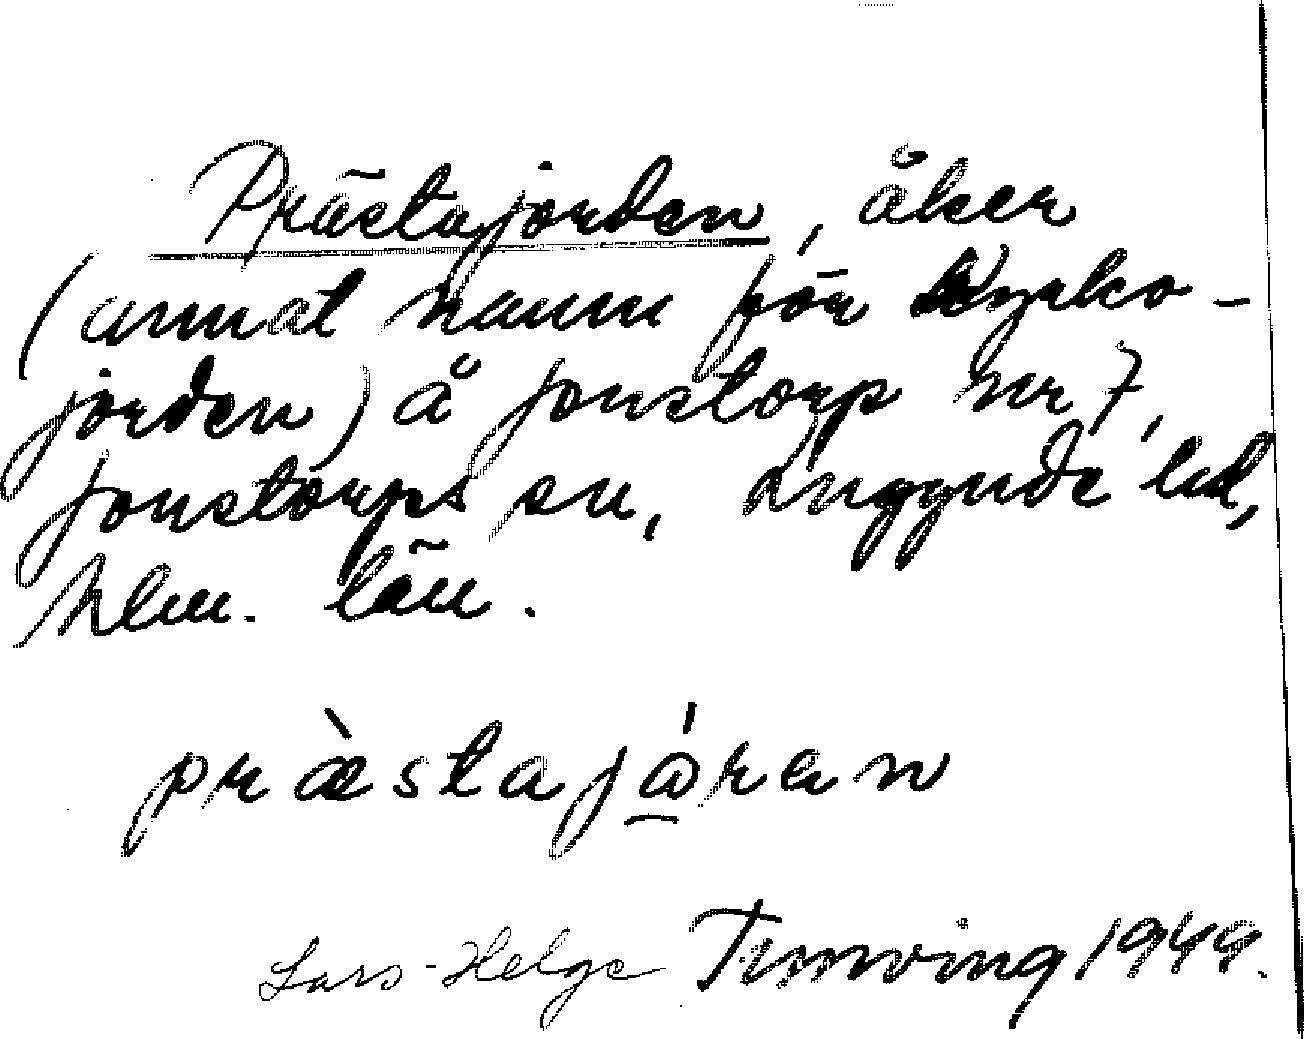 Prästajorden, åker
(annat namn för Kyrko-
jorden) å Jonstorp nr 7,
Jonstorps sn, Luggude hd,
Mlm. län.
præstajɷran
Lars-Helge 1949.